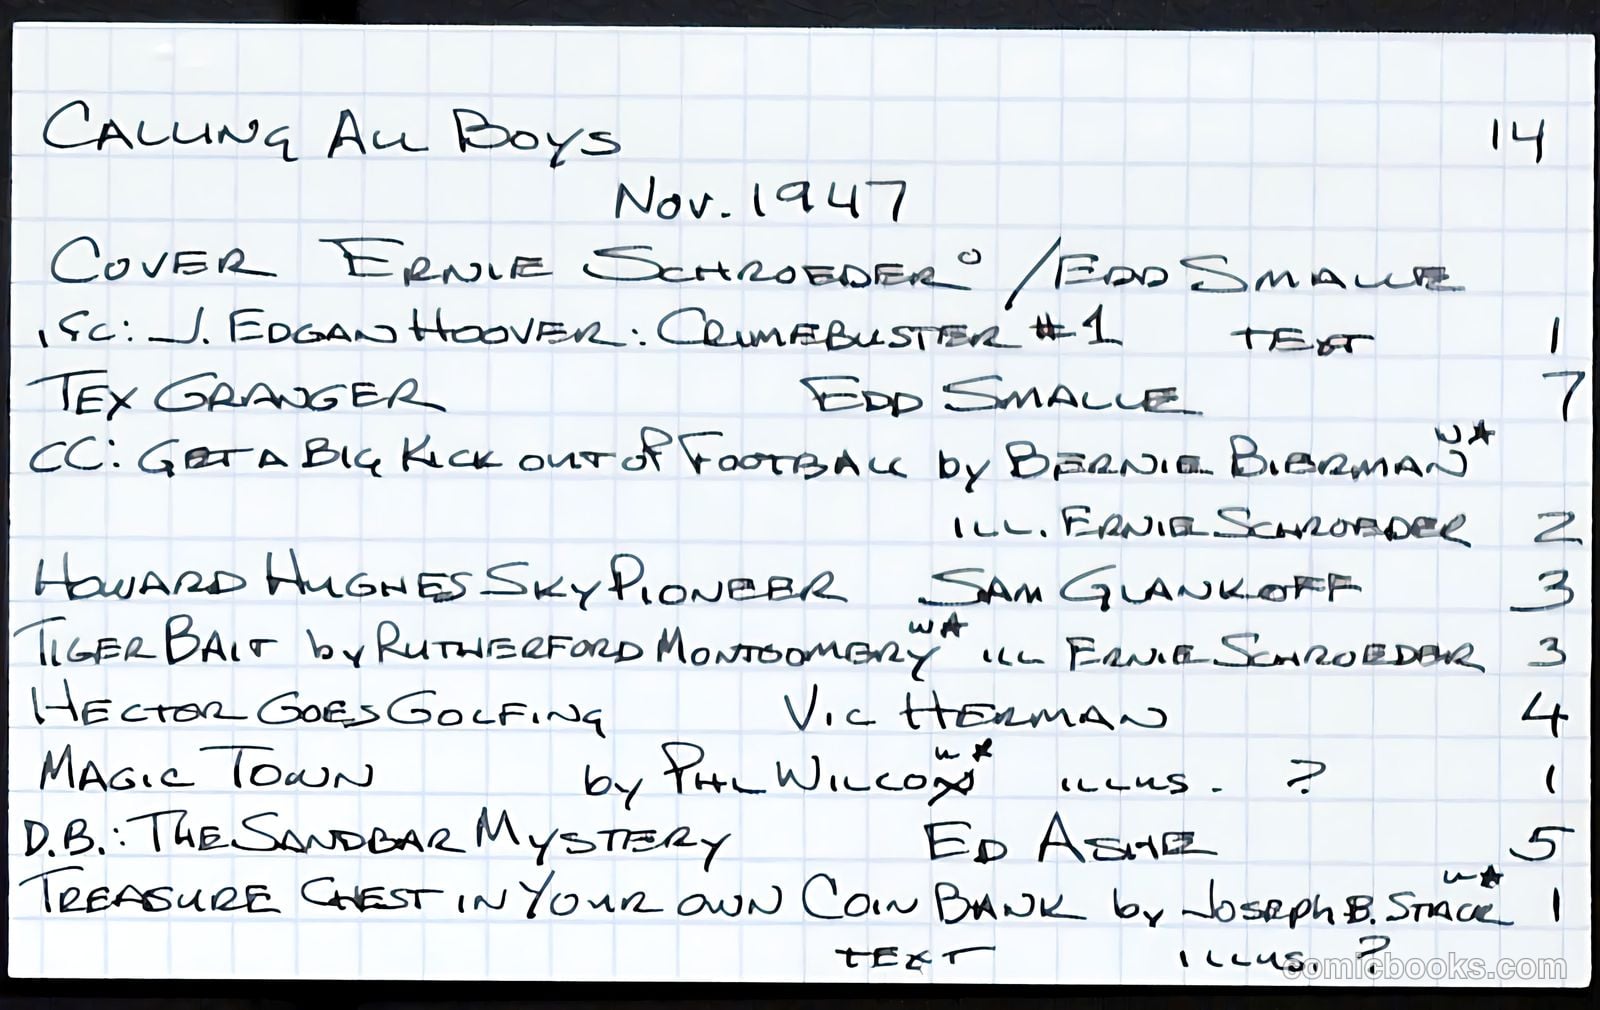 CALLING ALL BOYS 14
NOV. 1947
COVER ERNIE SCHROEDER° / EDD SMALLE
IFC: J. EDGAR HOOVER: CRIMEBUSTER #1 TEXT 1
TEX GRANGER EDD SMALLE 7
CC: GET A BIG KICK OUT OF FOOTBALL by BERNIE BIERMAN W★
ILL. ERNIE SCHROEDER 2
HOWARD HUGHES SKY PIONEER SAM GLANKOFF 3
TIGER BAIT by RUTHERFORD MONTGOMERY W★ ILL ERNIE SCHROEDER 3
HECTOR GOES GOLFING VIC HERMAN 4
MAGIC TOWN by PHIL WILCOX W★ ILLUS. ? 1
D.B.: THE SANDBAR MYSTERY ED ASHE 5
TREASURE CHEST IN YOUR OWN COIN BANK by JOSEPH B. STACK W★ 1
TEXT ILLUS. ?
comicbooks.com